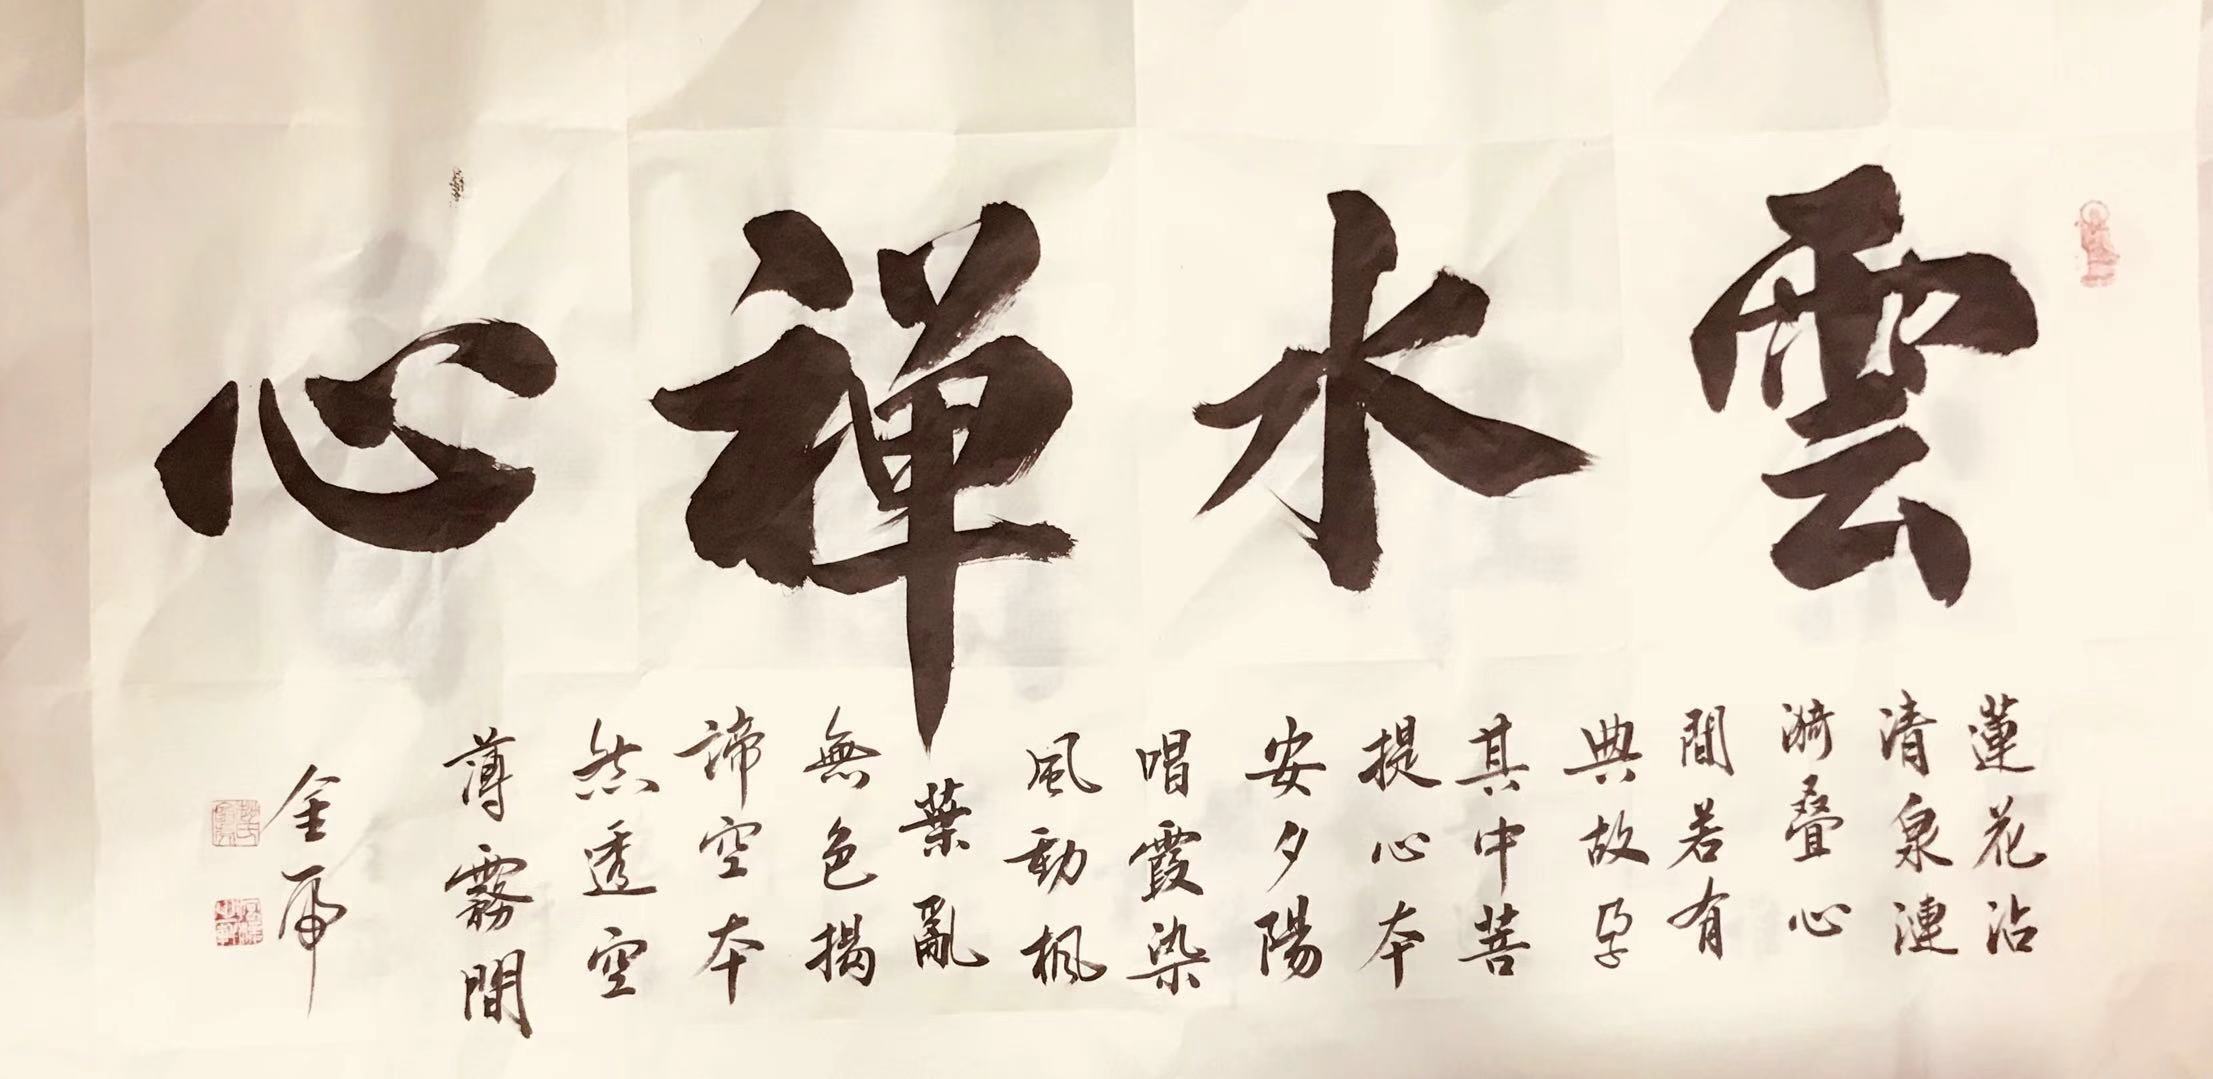 雲水禅心
蓮花沾
清泉漣
漪叠心
間若有
典故孕
其中菩
提心本
安夕陽
唱霞染
風動楓
葉亂
無色揭
諦空本
然透空
薄霧間
金